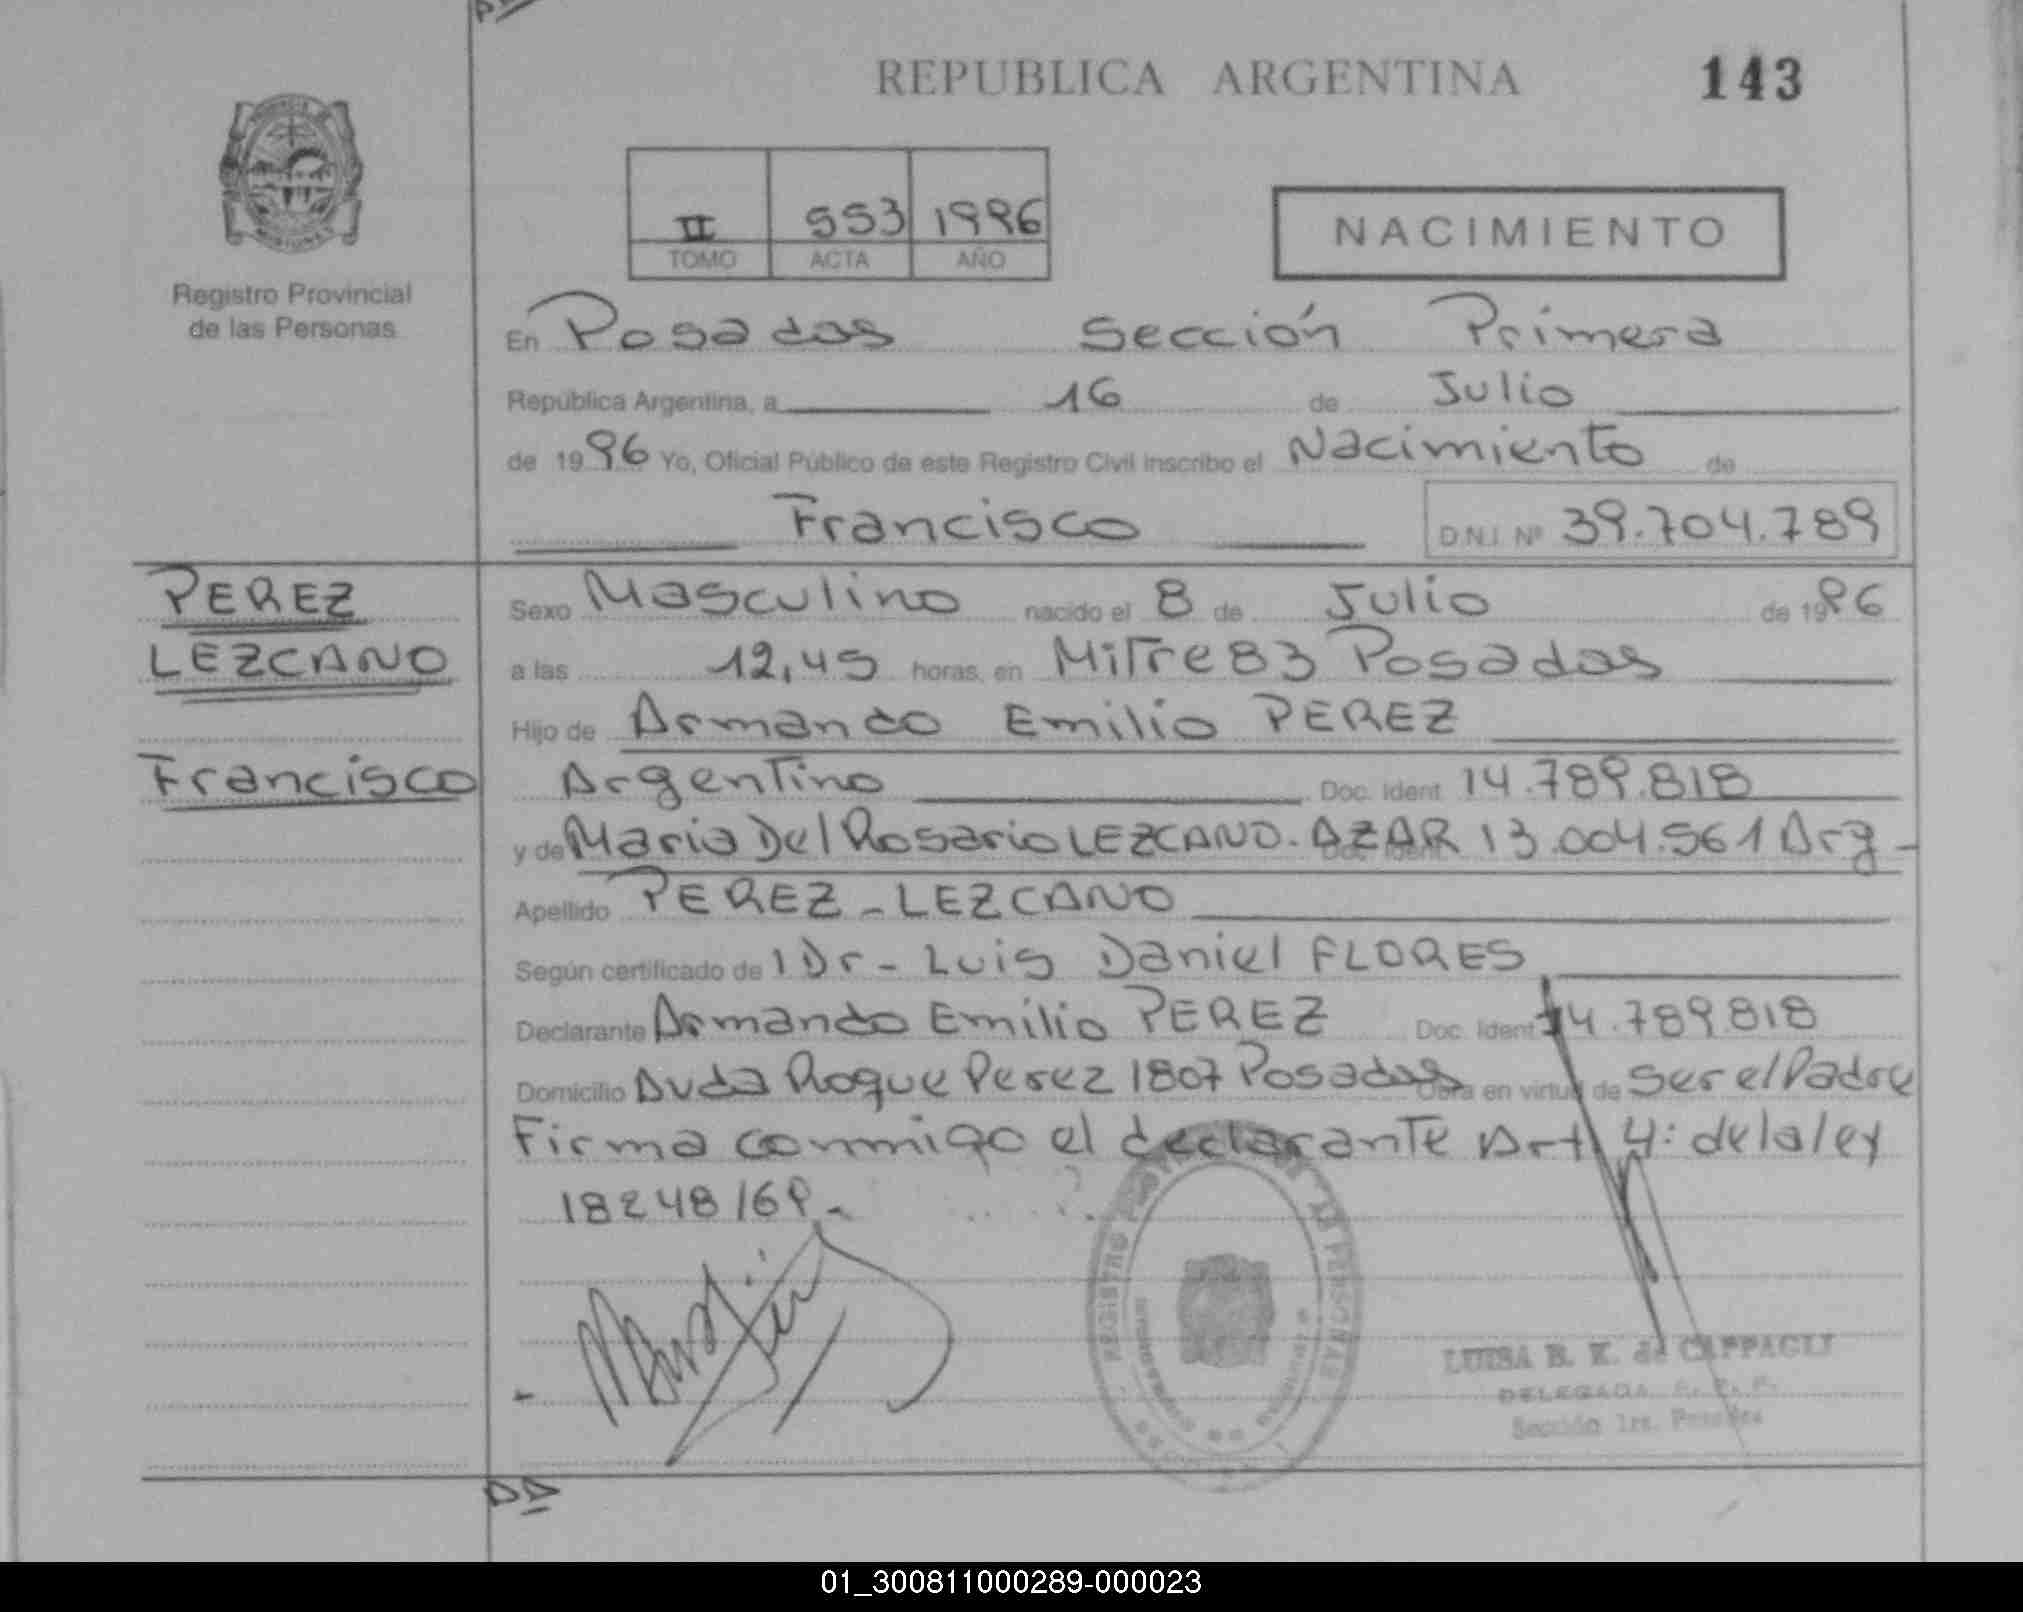 REPUBLICA ARGENTINA
143
II 553 1996
TOMO ACTA AÑO
NACIMIENTO
Registro Provincial
de las Personas
En Posadas Sección Primera
República Argentina, a 16 de Julio
de 1996 Yo, Oficial Público de este Registro Civil inscribo el Nacimiento de
Francisco D.N.I. Nº 39.704.789
PEREZ
LEZCANO
Francisco
Sexo Masculino nacido el 8 de Julio de 1996
a las 12,45 horas, en Mitre 83 Posadas
Hijo de Armando Emilio PEREZ
Argentino Doc. Ident. 14.789.818
y de Maria Del Rosario LEZCANO. AZAR 13.004.561 Arg-
Apellido PEREZ - LEZCANO
Según certificado de l Dr - Luis Daniel FLORES
Declarante Armando Emilio PEREZ Doc. Ident 14.789818
Domicilio Avda Roque Perez 1807 Posadas Obra en virtud de ser el Padre
Firma conmigo el declarante Art 4: de la ley
18248/69.-
REGISTRO PERSONAS
LUISA B. K. de CAPPAGLI
DELEGADA R. P. P.
Sección 1ra. Posadas
01_300811000289-000023